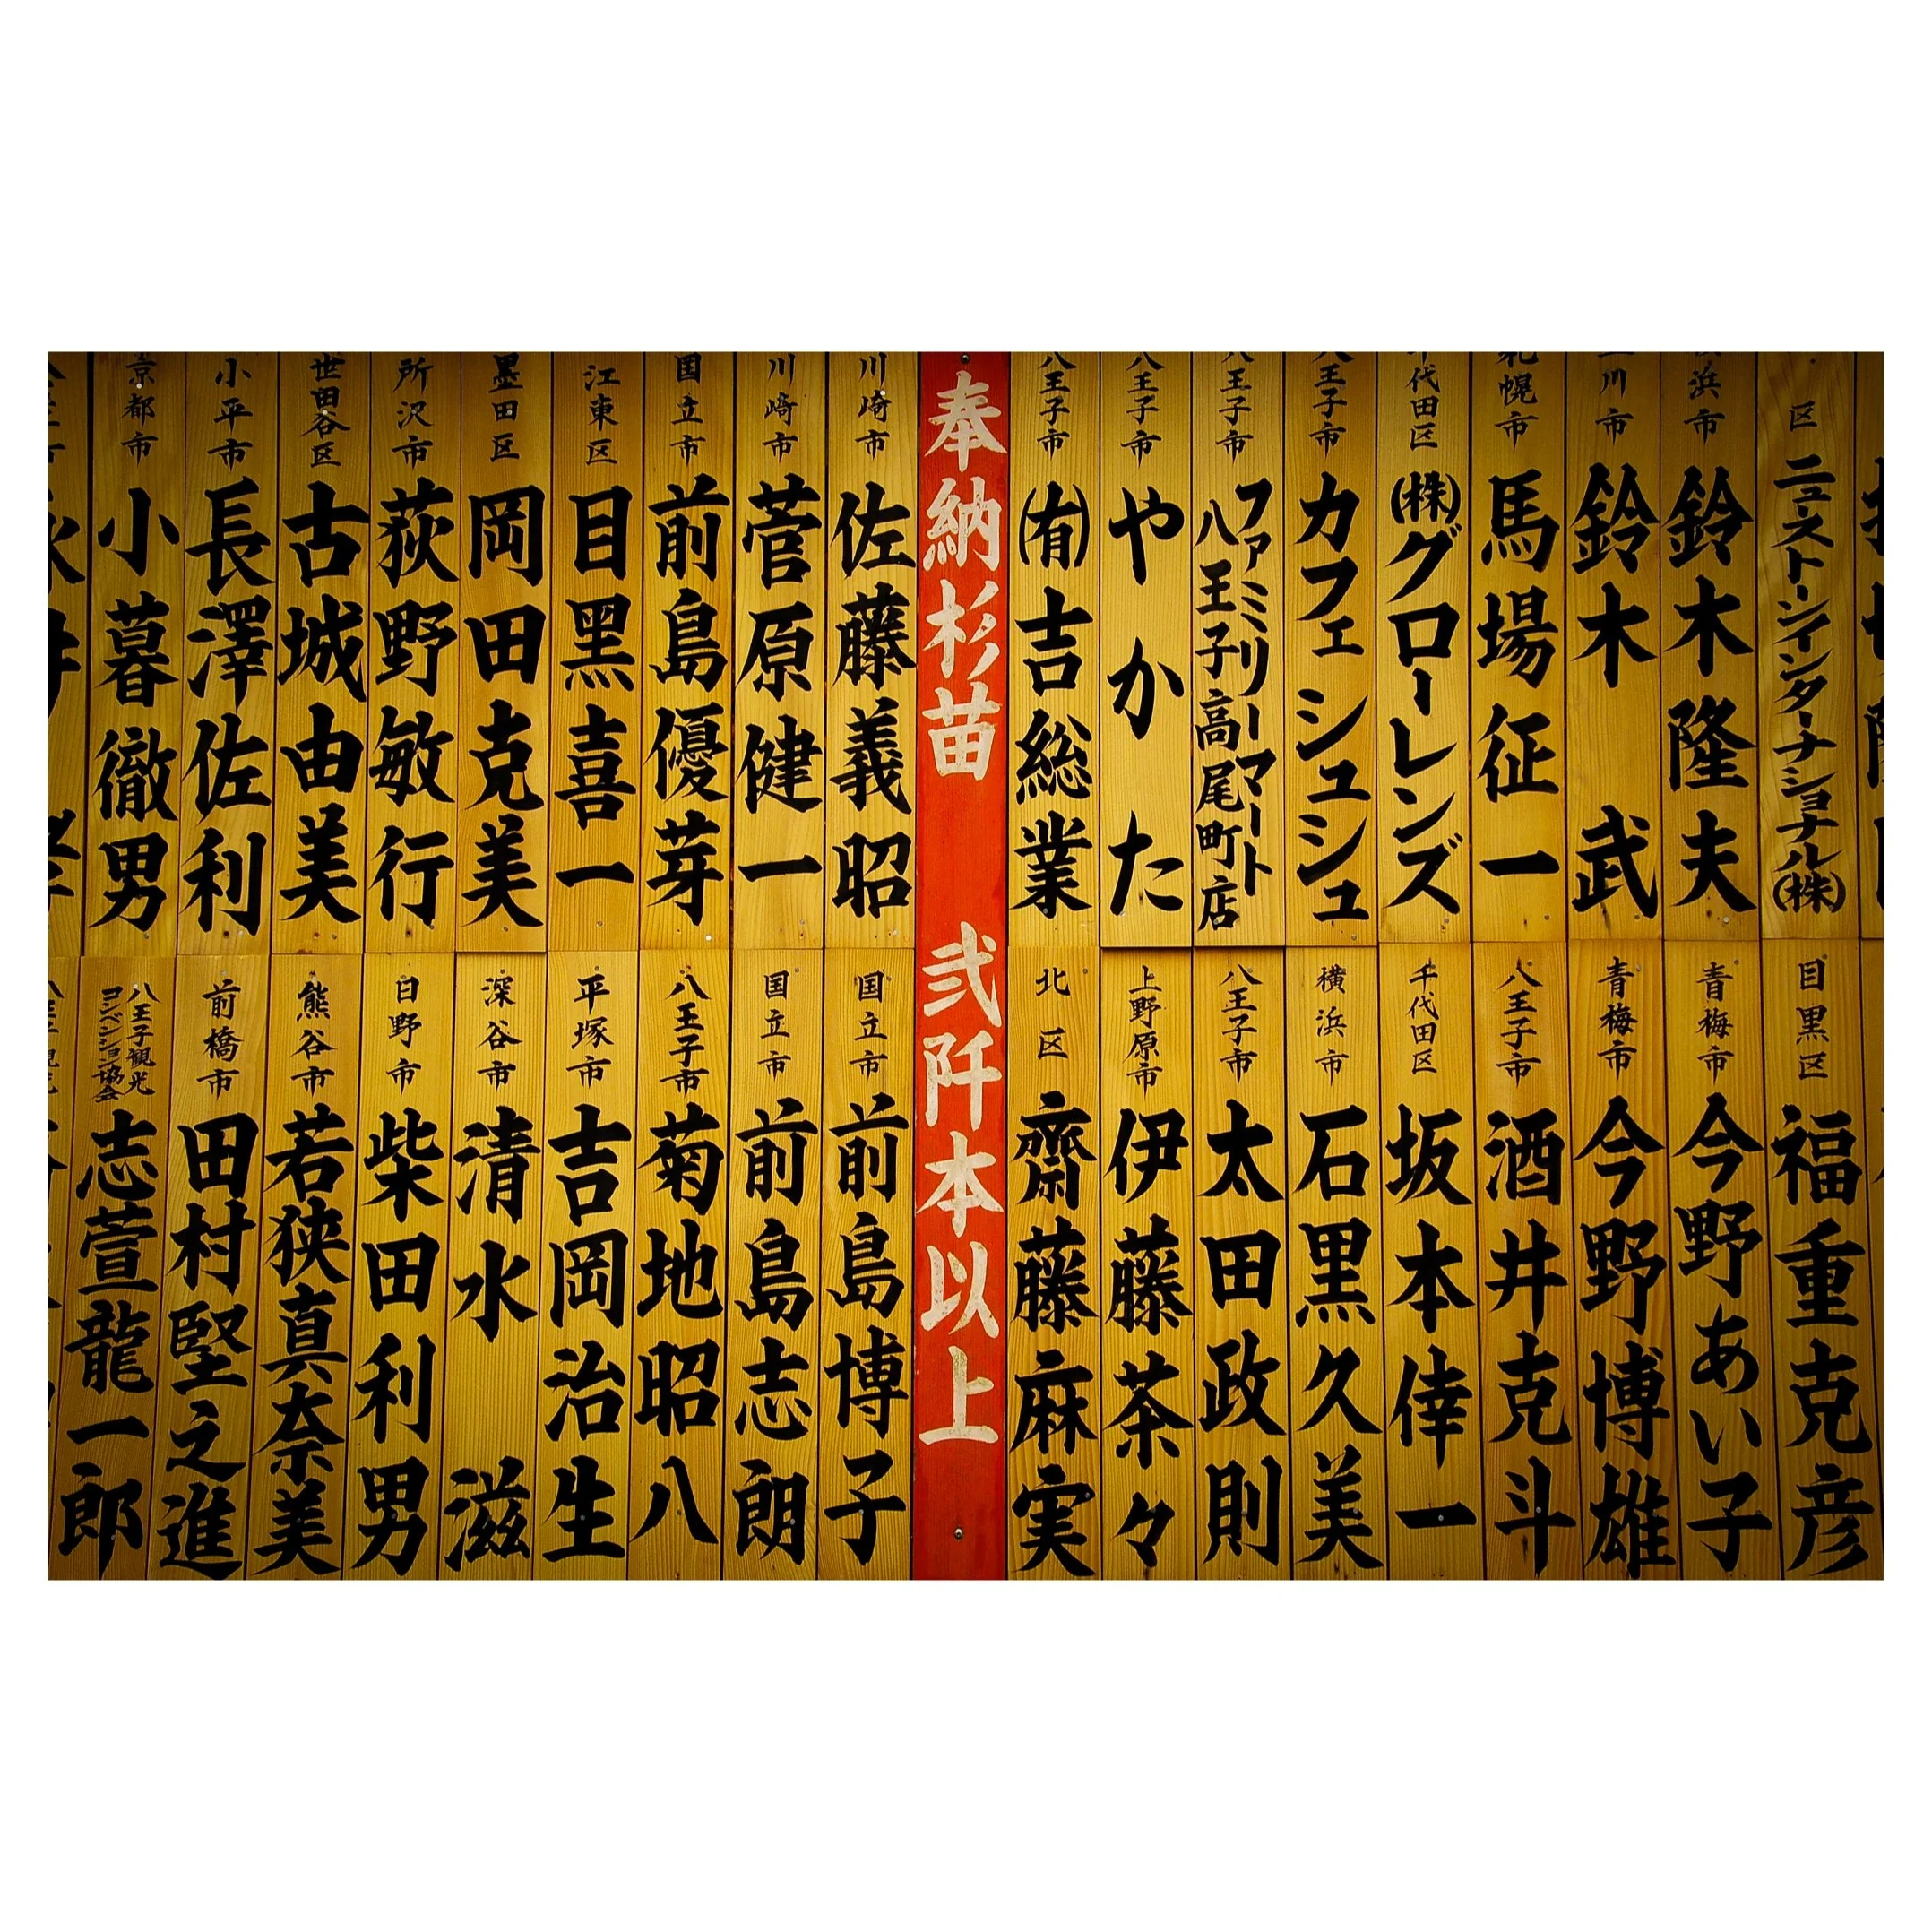 区 ニューストーンインターナショナル(株)
浜市 鈴木隆夫
川市 鈴木武
札幌市 馬場征一
千代田区 (株)グローレンズ
八王子市 カフェシュシュ
八王子市 ファミリーマート八王子高尾町店
八王子市 やかた
八王子市 (有)吉総業
目黒区 福重克彦
青梅市 今野あい子
青梅市 今野博雄
八王子市 酒井克斗
千代田区 坂本倖一
横浜市 石黒久美
八王子市 太田政則
上野原市 伊藤茶々
北区 齋藤麻実
奉納杉苗 弐阡本以上
川崎市 佐藤義昭
川崎市 菅原健一
国立市 前島優芽
江東区 目黒喜一
墨田区 岡田克美
所沢市 荻野敏行
世田谷区 古城由美
小平市 長澤佐利
京都市 小暮徹男
国立市 前島博子
国立市 前島志朗
八王子市 菊地昭八
平塚市 吉岡治生
深谷市 清水滋
日野市 柴田利男
熊谷市 若狭真奈美
前橋市 田村堅之進
八王子観光コンベンション協会 志萱龍一郎